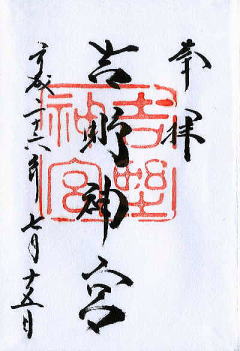 奉拝
吉野神宮
吉野神宮
平成二十六年七月十五日